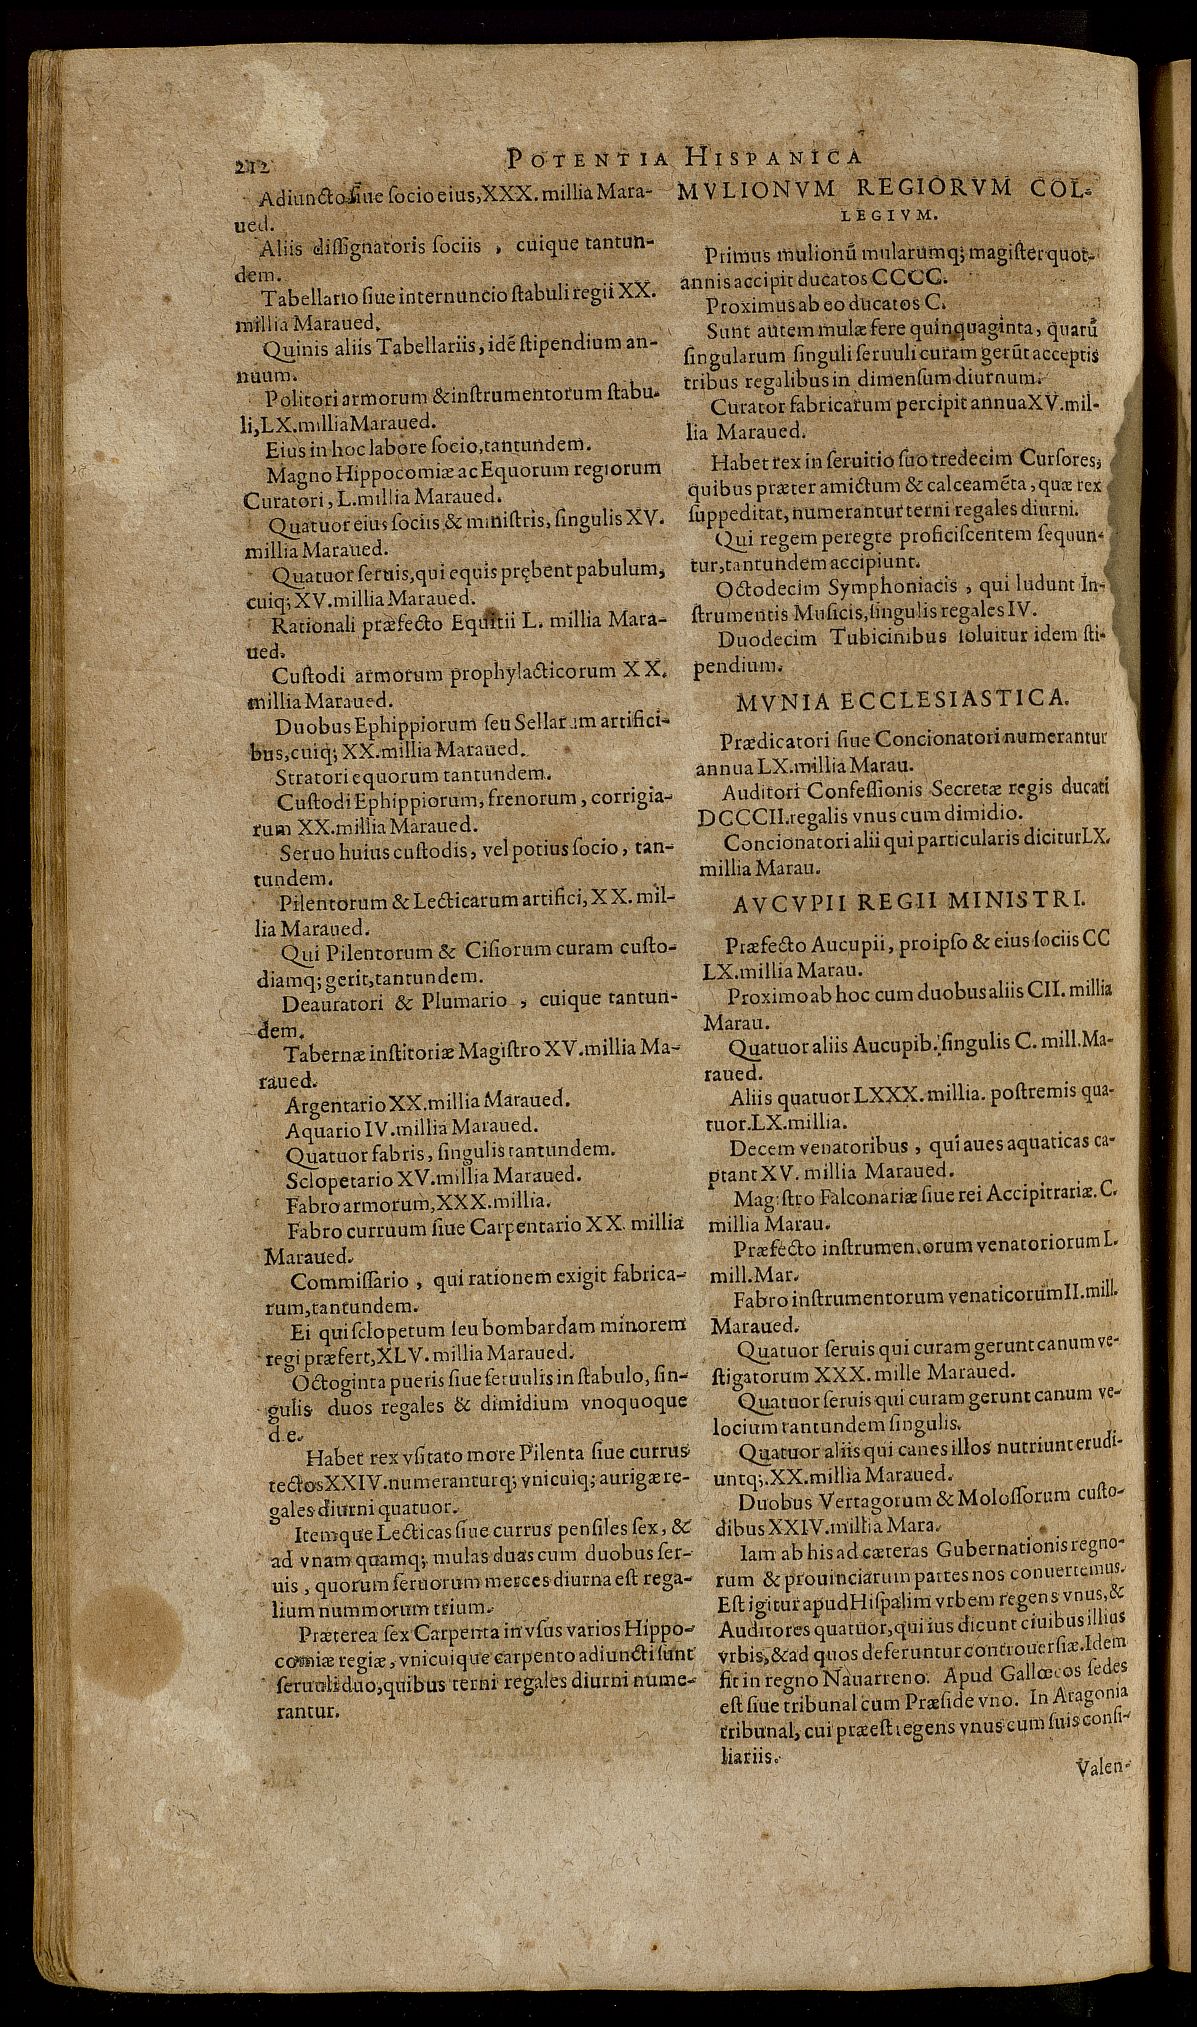 212
POTENTIA HISPANICA
Adiuncto siue socio eius, XXX. millia Mara-
ued.
Aliis dissignatoris sociis, cuique tantun-
dem.
Tabellario siue internuncio stabuli regii XX.
millia Maraued.
Quinis aliis Tabellariis, idẽ stipendium an-
nuum.
Politori armorum & instrumentorum stabu-
li, LX. millia Maraued.
Eius in hoc labore socio, tantundem.
Magno Hippocomiæ ac Equorum regiorum
Curatori, L. millia Maraued.
Quatuor eius sociis & ministris, singulis XV.
millia Maraued.
Quatuor seruis, qui equis prębent pabulum,
cuiq; XV. millia Maraued.
Rationali præfecto Equitii L. millia Mara-
ued.
Custodi armorum prophylacticorum XX.
millia Maraued.
Duobus Ephippiorum seu Sellarum artifici-
bus, cuiq; XX. millia Maraued.
Stratori equorum tantundem.
Custodi Ephippiorum, frenorum, corrigia-
rum XX. millia Maraued.
Seruo huius custodis, vel potius socio, tan-
tundem.
Pilentorum & Lecticarum artifici, XX. mil-
lia Maraued.
Qui Pilentorum & Cisiorum curam custo-
diamq; gerit, tantundem.
Deauratori & Plumario, cuique tantun-
dem.
Tabernæ institoriæ Magistro XV. millia Ma-
raued.
Argentario XX. millia Maraued.
Aquario IV. millia Maraued.
Quatuor fabris, singulis tantundem.
Sclopetario XV. millia Maraued.
Fabro armorum, XXX. millia.
Fabro curruum siue Carpentario XX. millia
Maraued.
Commissario, qui rationem exigit fabrica-
rum, tantundem.
Ei qui sclopetum seu bombardam minorem
regi præfert, XLV. millia Maraued.
Octoginta pueris siue seruulis in stabulo, sin-
gulis duos regales & dimidium vnoquoque
die.
Habet rex vsitato more Pilenta siue currus
tectos XXIV. numeranturq; vnicuiq; aurigæ re-
gales diurni quatuor.
Itemque Lecticas siue currus pensiles sex, &
ad vnam quamq; mulas duas cum duobus ser-
uis, quorum seruorum merces diurna est rega-
lium nummorum trium.
Præterea sex Carpenta in vsus varios Hippo-
comiæ regiæ, vnicuique carpento adiuncti sunt
seruuli duo, quibus terni regales diurni nume-
rantur.
MVLIONVM REGIORVM COL-
LEGIVM.
Primus mulionũ mularumq; magister quot-
annis accipit ducatos CCCC.
Proximus ab eo ducatos C.
Sunt autem mulæ fere quinquaginta, quarũ
singularum singuli seruuli curam gerũt acceptis
tribus regalibus in dimensum diurnum.
Curator fabricarum percipit annua XV. mil-
lia Maraued.
Habet rex in seruitio suo tredecim Cursores,
quibus præter amictum & calceamẽta, quæ rex
suppeditat, numerantur terni regales diurni.
Qui regem peregre proficiscentem sequun-
tur, tantundem accipiunt.
Octodecim Symphoniacis, qui ludunt In-
strumentis Musicis, singulis regales IV.
Duodecim Tubicinibus soluitur idem sti-
pendium.
MVNIA ECCLESIASTICA.
Prædicatori siue Concionatori numerantur
annua LX. millia Marau.
Auditori Confessionis Secretæ regis ducati
DCCCII. regalis vnus cum dimidio.
Concionatori alii qui particularis dicitur LX.
millia Marau.
AVCVPII REGII MINISTRI.
Præfecto Aucupii, pro ipso & eius sociis CC
LX. millia Marau.
Proximo ab hoc cum duobus aliis CII. millia
Marau.
Quatuor aliis Aucupib. singulis C. mill. Ma-
raued.
Aliis quatuor LXXX. millia. postremis qua-
tuor. LX. millia.
Decem venatoribus, qui aues aquaticas ca-
ptant XV. millia Maraued.
Magistro Falconariæ siue rei Accipitrariæ. C.
millia Marau.
Præfecto instrumentorum venatoriorum L.
mill. Mar.
Fabro instrumentorum venaticorum II. mill.
Maraued.
Quatuor seruis qui curam gerunt canum ve-
stigatorum XXX. mille Maraued.
Quatuor seruis qui curam gerunt canum ve-
locium tantundem singulis.
Quatuor aliis qui canes illos nutriunt erudi-
untq;. XX. millia Maraued.
Duobus Vertagorum & Molossorum custo-
dibus XXIV. millia Mara.
Iam ab his ad cæteras Gubernationis regno-
rum & prouinciarum partes nos conuertemus.
Est igitur apud Hispalim vrbem regens vnus, &
Auditores quatuor, qui ius dicunt ciuibus illius
vrbis, & ad quos deferuntur controuersiæ. Idem
fit in regno Nauarreno. Apud Gallœcos sedes
est siue tribunal cum Præside vno. In Aragonia
tribunal, cui præest regens vnus cum suis consi-
liariis.
Valen-